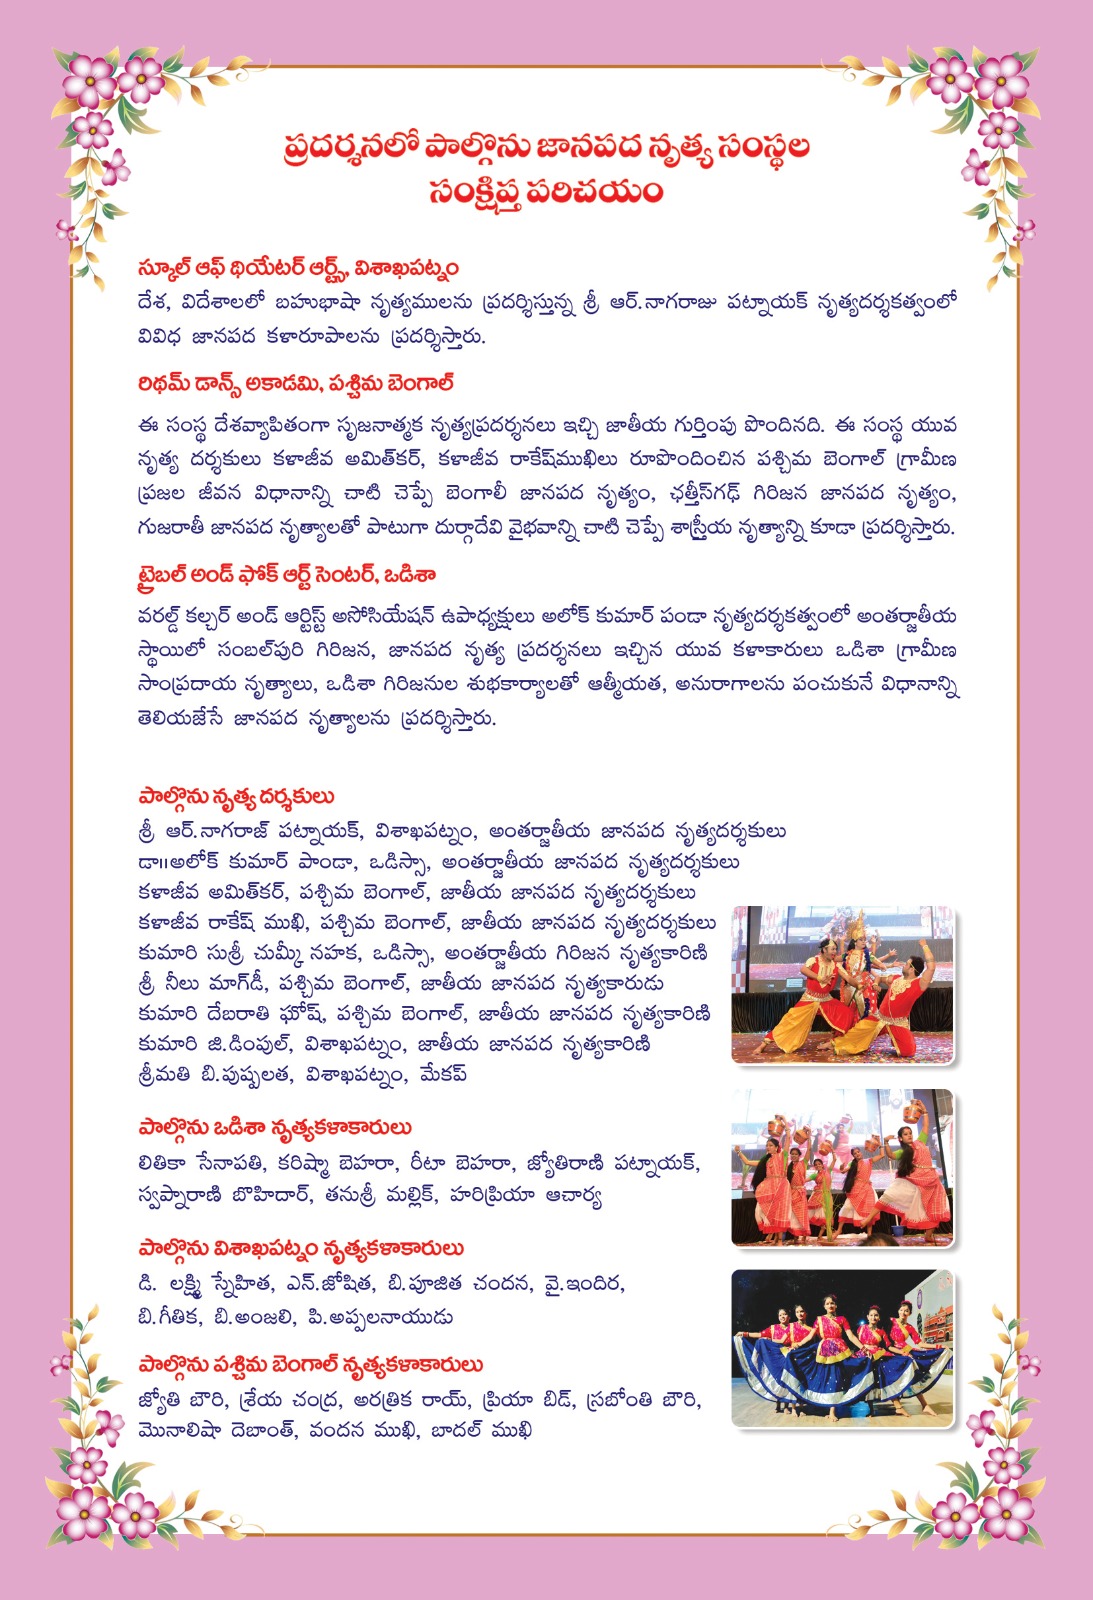 ప్రదర్శనలో పాల్గొను జానపద నృత్య సంస్థల
సంక్షిప్త పరిచయం
స్కూల్ ఆఫ్ థియేటర్ ఆర్ట్స్, విశాఖపట్నం
దేశ, విదేశాలలో బహుభాషా నృత్యములను ప్రదర్శిస్తున్న శ్రీ ఆర్.నాగరాజు పట్నాయక్ నృత్యదర్శకత్వంలో
వివిధ జానపద కళారూపాలను ప్రదర్శిస్తారు.
రిథమ్ డాన్స్ అకాడమి, పశ్చిమ బెంగాల్
ఈ సంస్థ దేశవ్యాపితంగా సృజనాత్మక నృత్యప్రదర్శనలు ఇచ్చి జాతీయ గుర్తింపు పొందినది. ఈ సంస్థ యువ
నృత్య దర్శకులు కళాజీవ అమిత్‌కర్, కళాజీవ రాకేష్‌ముఖిలు రూపొందించిన పశ్చిమ బెంగాల్ గ్రామీణ
ప్రజల జీవన విధానాన్ని చాటి చెప్పే బెంగాలీ జానపద నృత్యం, ఛత్తీస్‌గఢ్ గిరిజన జానపద నృత్యం,
గుజరాతీ జానపద నృత్యాలతో పాటుగా దుర్గాదేవి వైభవాన్ని చాటి చెప్పే శాస్త్రీయ నృత్యాన్ని కూడా ప్రదర్శిస్తారు.
ట్రైబల్ అండ్ ఫోక్ ఆర్ట్ సెంటర్, ఒడిశా
వరల్డ్ కల్చర్ అండ్ ఆర్టిస్ట్ అసోసియేషన్ ఉపాధ్యక్షులు అలోక్ కుమార్ పండా నృత్యదర్శకత్వంలో అంతర్జాతీయ
స్థాయిలో సంబల్‌పురి గిరిజన, జానపద నృత్య ప్రదర్శనలు ఇచ్చిన యువ కళాకారులు ఒడిశా గ్రామీణ
సాంప్రదాయ నృత్యాలు, ఒడిశా గిరిజనుల శుభకార్యాలతో ఆత్మీయత, అనురాగాలను పంచుకునే విధానాన్ని
తెలియజేసే జానపద నృత్యాలను ప్రదర్శిస్తారు.
పాల్గొను నృత్య దర్శకులు
శ్రీ ఆర్.నాగరాజ్ పట్నాయక్, విశాఖపట్నం, అంతర్జాతీయ జానపద నృత్యదర్శకులు
డా॥అలోక్ కుమార్ పాండా, ఒడిస్సా, అంతర్జాతీయ జానపద నృత్యదర్శకులు
కళాజీవ అమిత్‌కర్, పశ్చిమ బెంగాల్, జాతీయ జానపద నృత్యదర్శకులు
కళాజీవ రాకేష్ ముఖి, పశ్చిమ బెంగాల్, జాతీయ జానపద నృత్యదర్శకులు
కుమారి సుశ్రీ చుమ్కీ నహక, ఒడిస్సా, అంతర్జాతీయ గిరిజన నృత్యకారిణి
శ్రీ నీలు మాగ్‌డీ, పశ్చిమ బెంగాల్, జాతీయ జానపద నృత్యకారుడు
కుమారి దేబరాతి ఘోష్, పశ్చిమ బెంగాల్, జాతీయ జానపద నృత్యకారిణి
కుమారి జి.డింపుల్, విశాఖపట్నం, జాతీయ జానపద నృత్యకారిణి
శ్రీమతి బి.పుష్పలత, విశాఖపట్నం, మేకప్
పాల్గొను ఒడిశా నృత్యకళాకారులు
లితికా సేనాపతి, కరిష్మా బెహరా, రీటా బెహరా, జ్యోతిరాణి పట్నాయక్,
స్వప్నారాణి బొహిదార్, తనుశ్రీ మల్లిక్, హరిప్రియా ఆచార్య
పాల్గొను విశాఖపట్నం నృత్యకళాకారులు
డి. లక్ష్మి స్నేహిత, ఎన్.జోషిత, బి.పూజిత చందన, వై.ఇందిర,
బి.గీతిక, బి.అంజలి, పి.అప్పలనాయుడు
పాల్గొను పశ్చిమ బెంగాల్ నృత్యకళాకారులు
జ్యోతి బౌరి, శ్రేయ చంద్ర, అరత్రిక రాయ్, ప్రియా బిడ్, స్రబోంతి బౌరి,
మొనాలిషా దెబాంత్, వందన ముఖి, బాదల్ ముఖి